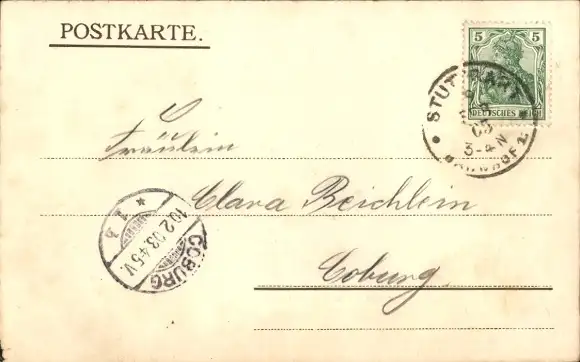 POSTKARTE.
5 5
DEUTSCHES REICH
STUTTGART
03
3-4N
BAHNHOF
Fräulein
Clara Beichlein
Coburg.
10.2.03.4-5V.
COBURG
* 1 *